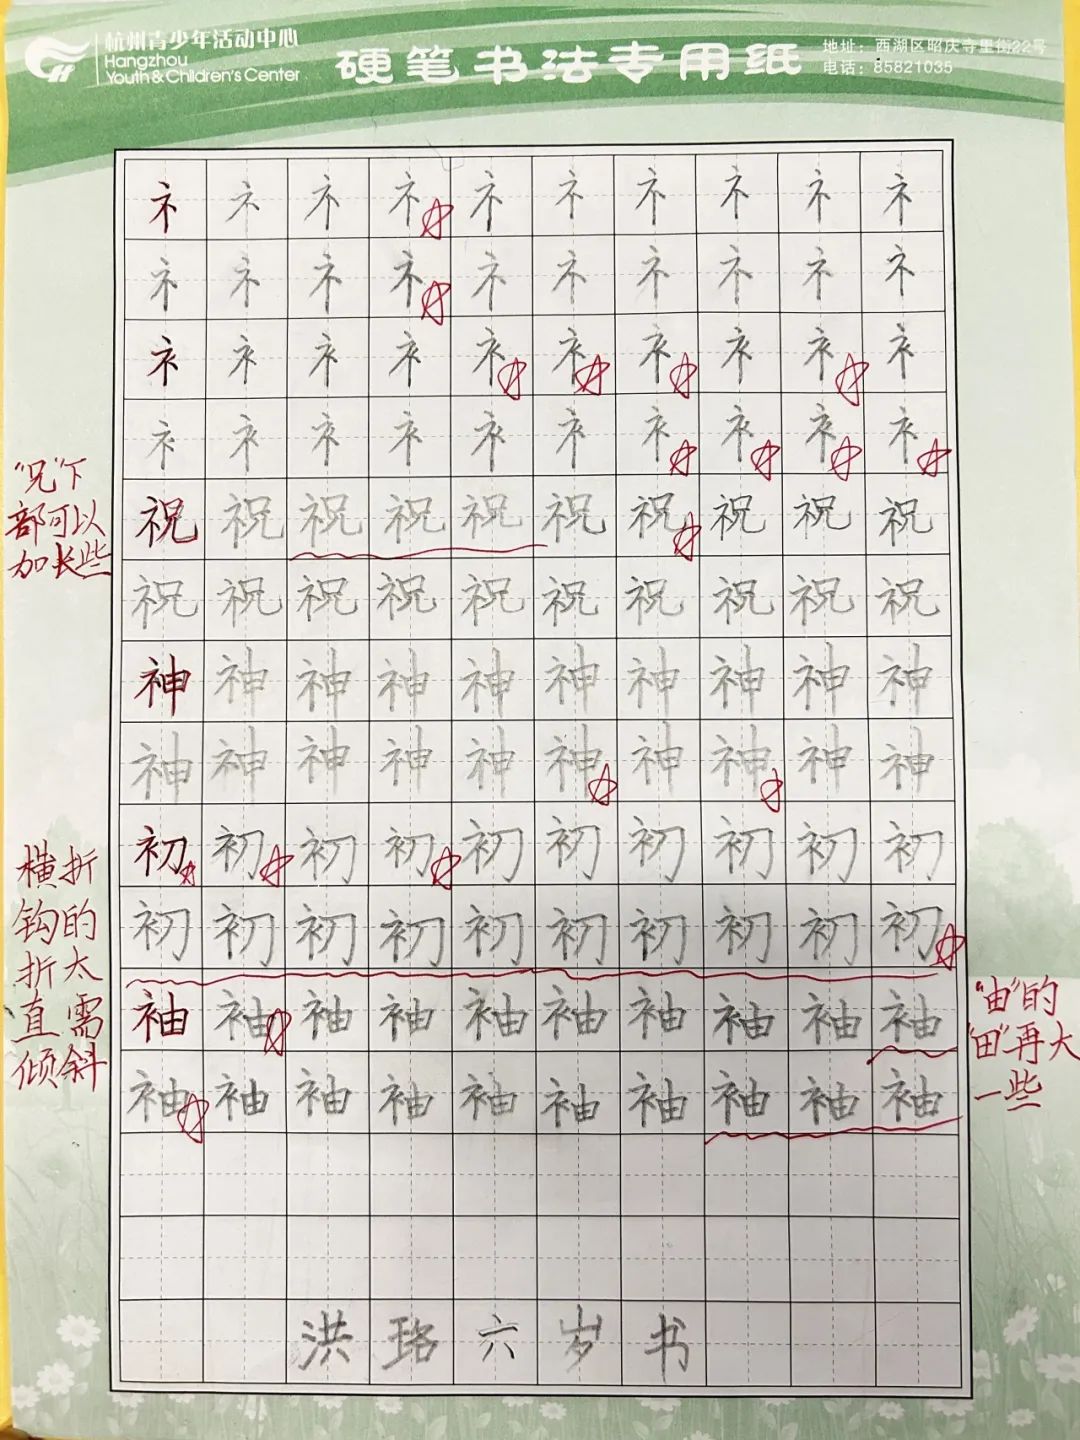 杭州青少年活动中心
Hangzhou
Youth & Children's Center
硬笔书法专用纸
地址：西湖区昭庆寺里街22号
电话：85821035
礻礻礻礻礻礻礻礻礻礻
礻礻礻礻礻礻礻礻礻礻
衤衤衤衤衤衤衤衤衤衤
衤衤衤衤衤衤衤衤衤衤
祝祝祝祝祝祝祝祝祝祝
祝祝祝祝祝祝祝祝祝祝
神神神神神神神神神神
神神神神神神神神神神
初初初初初初初初初初
初初初初初初初初初初
袖袖袖袖袖袖袖袖袖袖
袖袖袖袖袖袖袖袖袖袖
洪珞六岁书
"兄"下
部可以
加长些
横折
钩的
折太
直需
倾斜
"由"的
"田"再大
一些